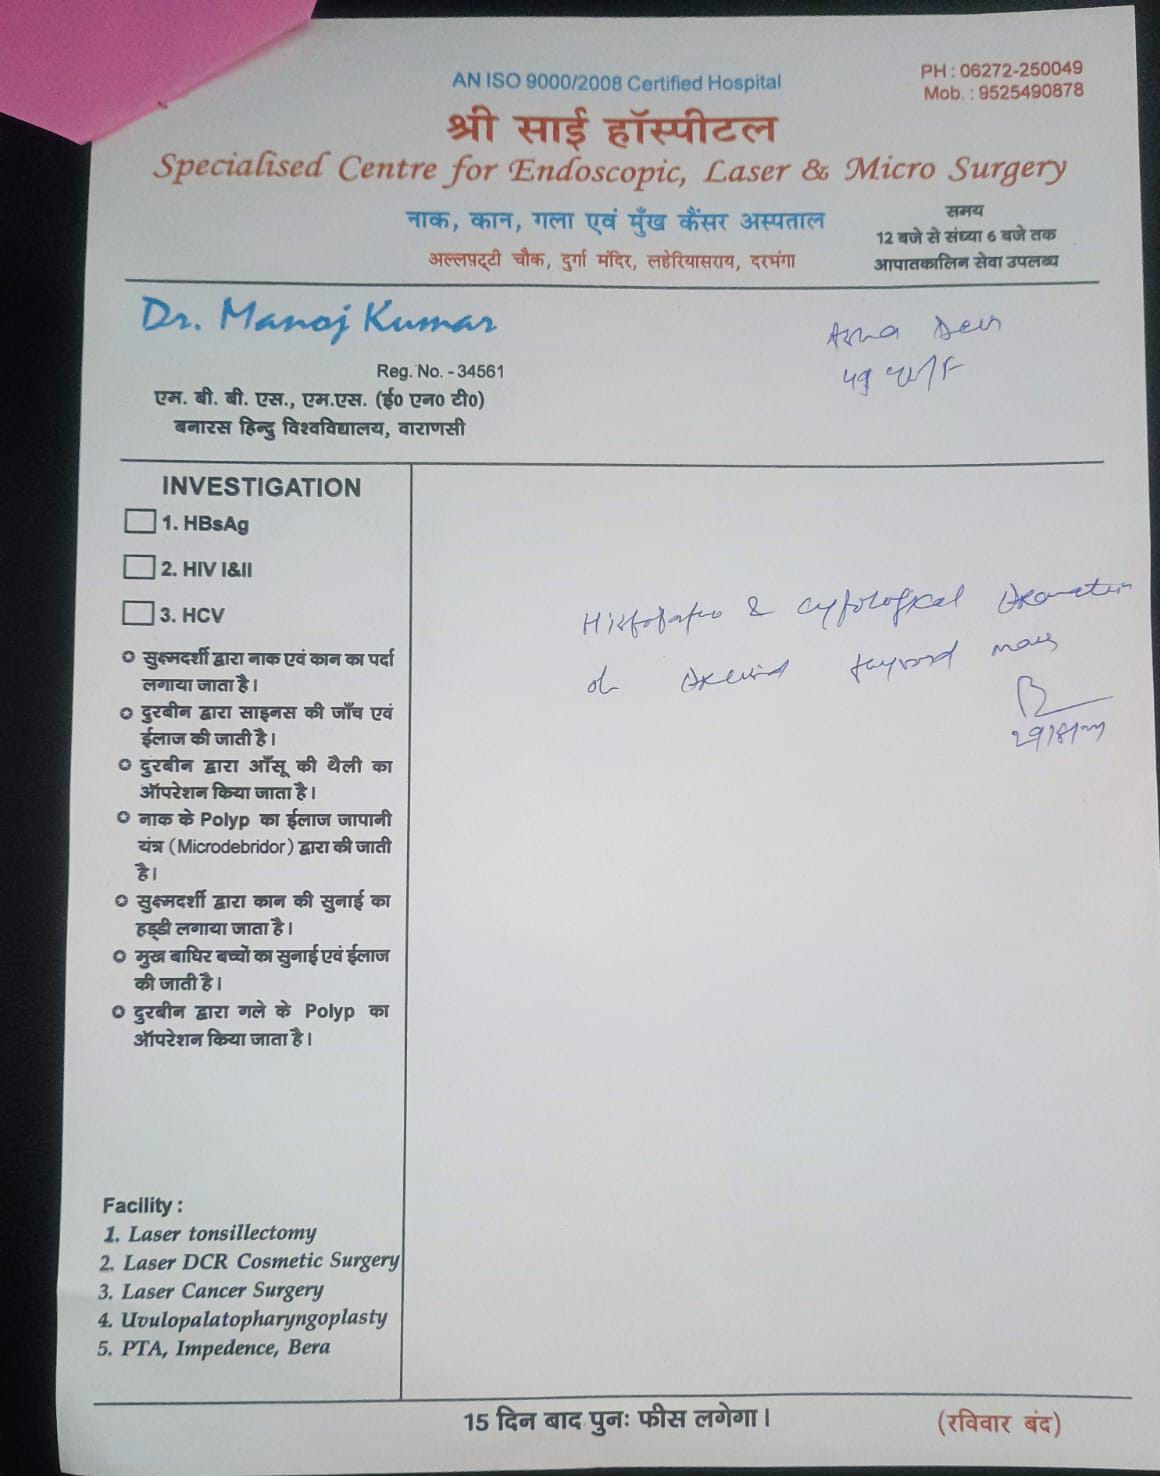 AN ISO 9000/2008 Certified Hospital
PH : 06272-250049
Mob. : 9525490878
श्री साई हॉस्पीटल
Specialised Centre for Endoscopic, Laser & Micro Surgery
नाक, कान, गला एवं मुँख कैंसर अस्पताल
अल्लप़ट्टी चौक, दुर्गा मंदिर, लहेरियासराय, दरभंगा
समय
12 बजे से संध्या 6 बजे तक
आपातकालिन सेवा उपलब्ध
Dr. Manoj Kumar
Reg. No. - 34561
एम. बी. बी. एस., एम.एस. (ई0 एन0 टी0)
बनारस हिन्दु विश्वविद्यालय, वाराणसी
INVESTIGATION
1. HBsAg
2. HIV I&II
3. HCV
सुक्ष्मदर्शी द्वारा नाक एवं कान का पर्दा
लगाया जाता है।
दुरबीन द्वारा साइनस की जाँच एवं
ईलाज की जाती है।
दुरबीन द्वारा आँसू की थैली का
ऑपरेशन किया जाता है।
नाक के Polyp का ईलाज जापानी
यंत्र (Microdebridor) द्वारा की जाती
है।
सुक्ष्मदर्शी द्वारा कान की सुनाई का
हड्डी लगाया जाता है।
मुख बाधिर बच्चों का सुनाई एवं ईलाज
की जाती है।
दुरबीन द्वारा गले के Polyp का
ऑपरेशन किया जाता है।
& cytological
Facility :
1. Laser tonsillectomy
2. Laser DCR Cosmetic Surgery
3. Laser Cancer Surgery
4. Uvulopalatopharyngoplasty
5. PTA, Impedence, Bera
15 दिन बाद पुनः फीस लगेगा।
(रविवार बंद)